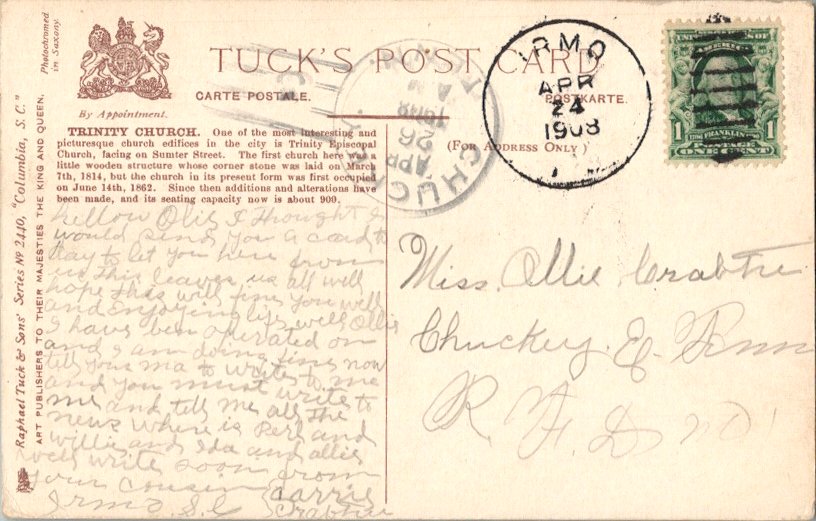 Photochromed
in Saxony.
TUCK'S POST CARD
By Appointment.
CARTE POSTALE.
POSTKARTE.
(For Address Only)
TRINITY CHURCH. One of the most interesting and
picturesque church edifices in the city is Trinity Episcopal
Church, facing on Sumter Street. The first church here was a
little wooden structure whose corner stone was laid on March
7th, 1814, but the church in its present form was first occupied
on June 14th, 1862. Since then additions and alterations have
been made, and its seating capacity now is about 900.
Raphael Tuck & Sons' Series Nº 2440, "Columbia, S. C."
ART PUBLISHERS TO THEIR MAJESTIES THE KING AND QUEEN.
IRMO
APR
24
1908
CHUCKEY
APR
26
AM
1908
1 FRANKLIN 1
POSTAGE
ONE CENT
hellow Olie I thought I
would send you a card to
day to let you here from
us This leaves us all well
hope this will fine you well
and Enjoying life well Ollie
I have ben operated on
and I am doing fine now
tell your ma to write to me
and you must write to
me and tell me all the
news where is Perl and
willie and Ida and allie
well write soon from
your cousin Carrie
Irmo S.C Crabtree
Miss. Ollie Crabtre
Chuckey. E. Tenn
R. F. D.